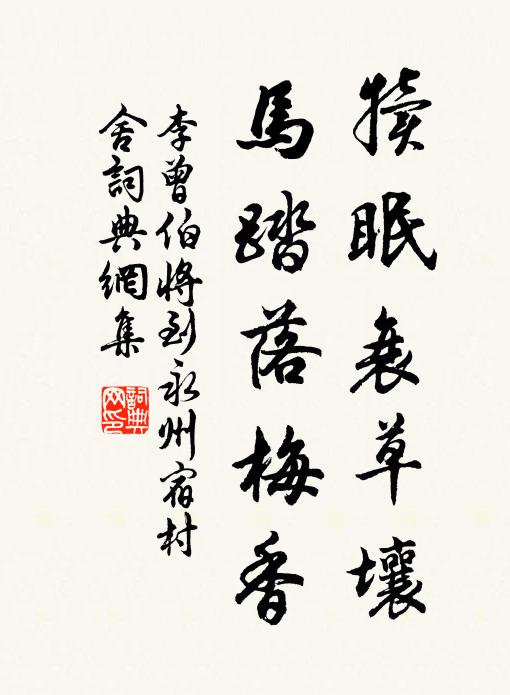 犢眠衰草壤
馬踏落梅香
李曾伯將到永州宿村
舍詞典網集
詞典网印